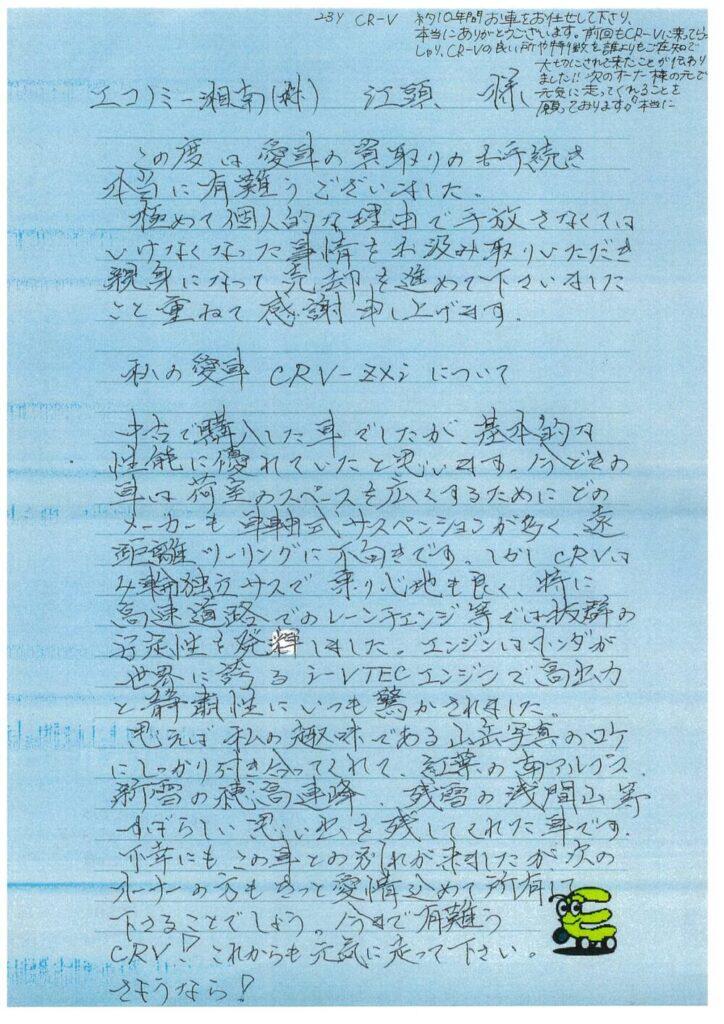 23y CR-V 約10年間お車をお任せして下さり、
本当にありがとうございます。前回もCR-Vに乗てらっ
しゃり、CR-Vの良い所や特徴を誰よりもご存知で
大切にされて来たことが伝わり
ました!! 次のオーナー様の元で
元気に走ってくれることを
願っております。本当に
エコノミー湘南(株) 江頭 様
この度は愛車の買取りのお手続き
本当に有難うございました。
極めて個人的な理由で手放さなくては
いけなくなった事情をお汲み取りいただき
親身になって売却を進めて下さいました
こと重ねて感謝申し上げます。
私の愛車 CRV-ZXiについて
中古で購入した車でしたが、基本的な
性能に優れていたと思います。今どきの
車は荷室のスペースを広くするためにどの
メーカーも車軸式サスペンションが多く、遠
距離ツーリングに不向きです。しかしCRVは
4輪独立サスで乗り心地も良く、特に
高速道路でのレーンチェンジ等では抜群の
安定性を発揮しました。エンジンはホンダが
世界に誇るi-VTECエンジンで高出力
と静粛性にいつも驚かされました。
思えば私の趣味である山岳写真のロケ
にしっかり付き合ってくれて、紅葉の南アルプス、
新雪の穂高連峰、残雪の浅間山等
すばらしい思い出を残してくれた車です。
不幸にもこの車との別れが来ましたが次の
オーナーの方もきっと愛情込めて所有して
下さることでしょう。今まで有難う
CRV!! これからも元気に走って下さい。
さようなら!